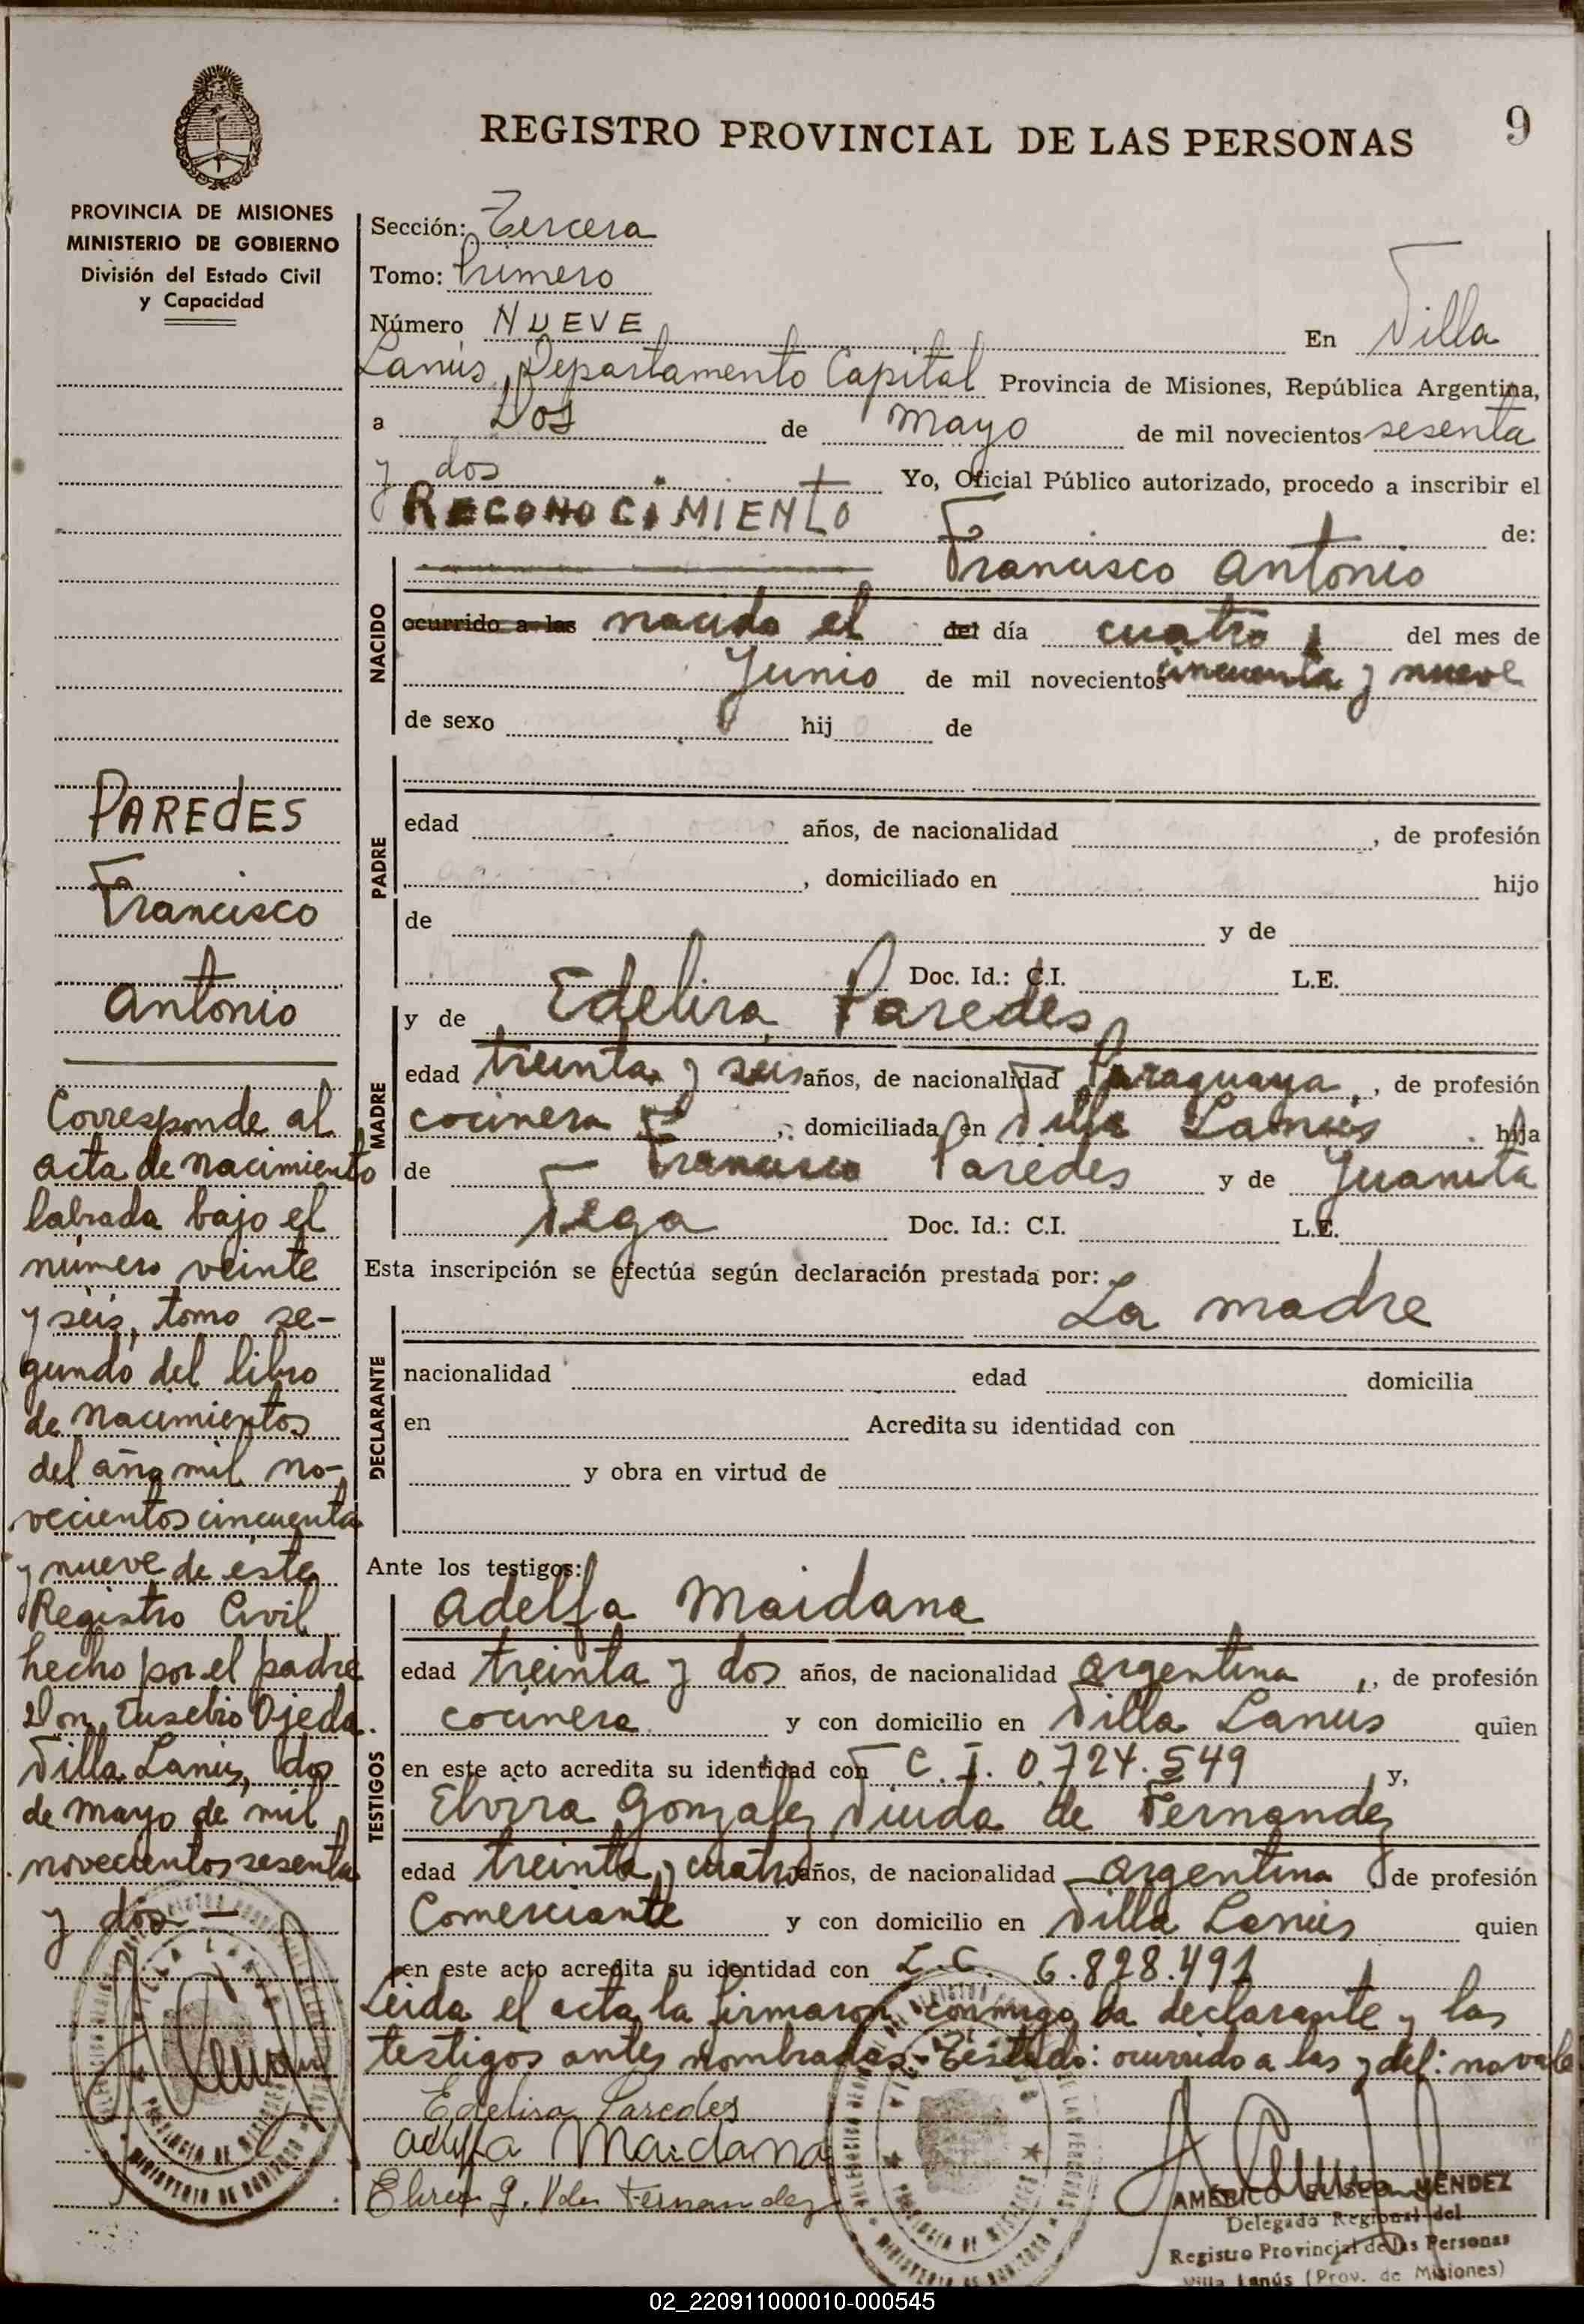 REGISTRO PROVINCIAL DE LAS PERSONAS
9
PROVINCIA DE MISIONES
MINISTERIO DE GOBIERNO
División del Estado Civil
y Capacidad
PAREDES
Francisco
Antonio
Corresponde al
acta de nacimiento
labrada bajo el
número veinte
y séis, tomo se-
gundo del libro
de nacimientos
del año mil no-
vecientos cincuenta
y nueve de éste
Registro Civil
hecho por el padre
Don Eusebio Ojeda.
Villa Lanús, dos
de mayo de mil
novecientos sesenta
y dos —
Sección: Tercera
Tomo: Primero
Número NUEVE En Villa
Lanús, Departamento Capital Provincia de Misiones, República Argentina,
a Dos de mayo de mil novecientos sesenta
y dos Yo, Oficial Público autorizado, procedo a inscribir el
RECONOCIMIENTO de:
NACIDO
Francisco Antonio
ocurrido a las nacido el del día cuatro del mes de
Junio de mil novecientos cincuenta y nueve
de sexo hij de
PADRE
edad años, de nacionalidad , de profesión
, domiciliado en hijo
de y de
Doc. Id.: C.I. L.E.
MADRE
y de Edelira Paredes
edad treinta y seis años, de nacionalidad Paraguaya, de profesión
cocinera , domiciliada en Villa Lanús hija
de Francisco Paredes y de Juanita
Vega Doc. Id.: C.I. L.E.
Esta inscripción se efectúa según declaración prestada por:
La madre
DECLARANTE
nacionalidad edad domicilia
en Acredita su identidad con
y obra en virtud de
Ante los testigos:
TESTIGOS
Adelfa Maidana
edad treinta y dos años, de nacionalidad argentina, de profesión
cocinera y con domicilio en Villa Lanús quien
en este acto acredita su identidad con C. I. 0.724.549 y,
Elvira Gonzalez Viuda de Fernandez
edad treinta y cuatro años, de nacionalidad argentina de profesión
Comerciante y con domicilio en Villa Lanús quien
en este acto acredita su identidad con L.C. 6.828.491
Leída el acta la firmaron conmigo la declarante y las
testigos antes nombradas.- Testado: ocurrido a las y del: no vale
Edelira Paredes
Adelfa Maidana
Elvira G. Vda Fernandez
AMÉRICO ELISEO MÉNDEZ
Delegado Regional del
Registro Provincial de las Personas
Villa Lanús (Prov. de Misiones)
02_220911000010-000545